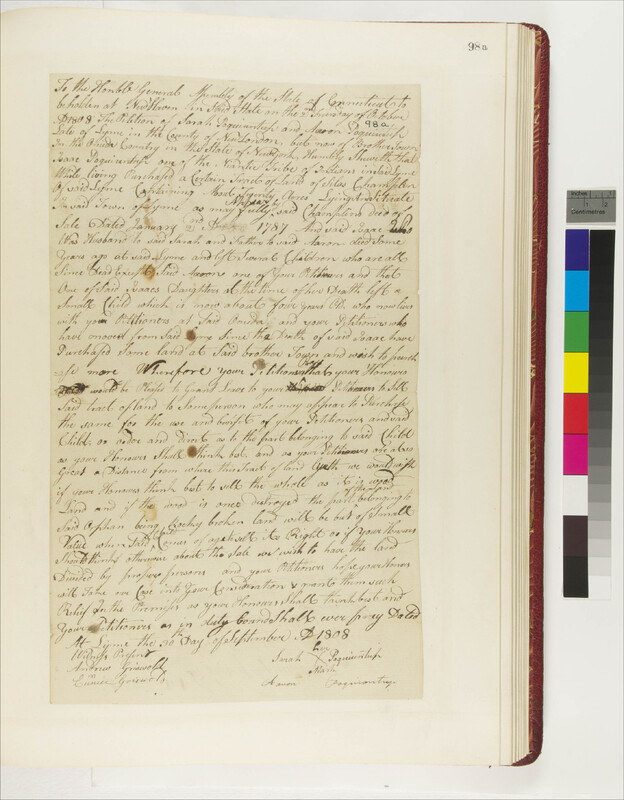 98a
To the Honble General Assembly of the State of Connecticut to
beholden at New Haven in Said State on the 2d Thursday of October
AD 1808 The Petition of Sarah Poquiantup and Aaron Poquiantup
98a
Late of Lyme in the County of New London, but now of Brother Town
In the Onida Country in the State of New York, Humbly Sheweth that
Isaac Poquiantup one of the Niantic Tribe of Indians in said Lyme
While living Purchased a Certain Tract of Land of Silas Champlen
Of said Lyme Containing About Twenty Acres Lying & Situate
In said Town of Lyme as may fully appear by said Champlens deed of
Sale Dated January 2nd 1787 And said Isaac who
Was Husband to said Sarah and Father to said Aaron died some
Years ago at said Lyme and left Several Children who are all
Since Dead Except said Aaron one of Your Petitioners and that
One of Said Isaacs Daughters at the time of her Death left a
Small Child which is now about four years Old who now lives
with your Petitioners at Said Onida and your Petitioners who
have moved from Said Lyme Since the Death of said Isaac have
Purchased some land at Said brother Town and wish to purch
ase more Wherefore your Petitioners Pray that your Honours
would be Pleased to Grant Leave to your Petitioners to Sell
Said tract of land to Some person who may appear to Purchase
the same for the use and benifit of your Petitioners and said
Child or order and Direct as to the part belonging to said Child
as your Honours Shall think best and as your Petitioners are at so
Great a Distance from where this tract of land Lyeth we would wish
if your Honours think best to sell the whole as it is wood
Land and if the wood is once destroyed the part of the land belonging to
Said Orphan being Rocky broken land will be but of Small
Value when said Child Comes of age to have its Right or if your Honours
Should think otherwise about the sale we wish to have the land
Divided by proper persons and your Petitioners hope your Honours
will take our Case into Your Consideration & grant them such
Relief In the Premises as your Honours Shall think best and
Your Petitioners as in duty bound Shall ever pray Dated
At Lyme the 30th Day of September AD 1808
Witness Present
Andrew Griswold
Eunice Griswold
Sarah her X Mark Poquiantup
Aaron Poquiantup
Centimetres